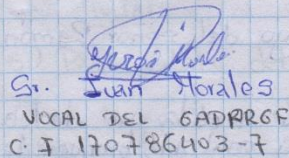 Sr. Juan Morales
VOCAL DEL GADPRGF
C. I 170786403-7